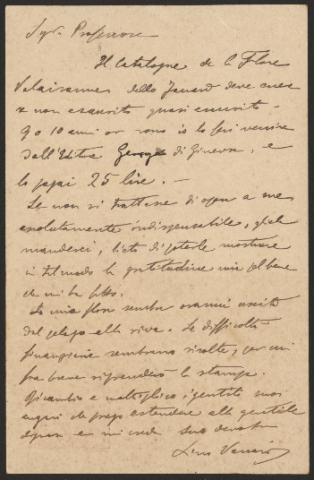 Sigr. Professore
Il Catalogue de la Flore
Valaisanne dello Jaccard deve essere
se non esaurito quasi esaurito.
9 o 10 anni or sono io lo feci venire
dall'Editore Georg di Ginevra, e
lo pagai 25 lire. —
Se non si trattasse di opera a me
assolutamente indispensabile, gliela
manderei, lieto di poterle mostrare
in tal modo la gratitudine mia pel bene
che mi ha fatto.
La mia flora sembra oramai uscita
dal pelago alla riva. Le difficoltà
finanziarie sembrano risolte, per cui
fra breve riprenderò la stampa.
Ricambio e moltiplico i gentili suoi
auguri che prego estendere alla gentile
sposa e mi creda suo devot
Lino Vaccari